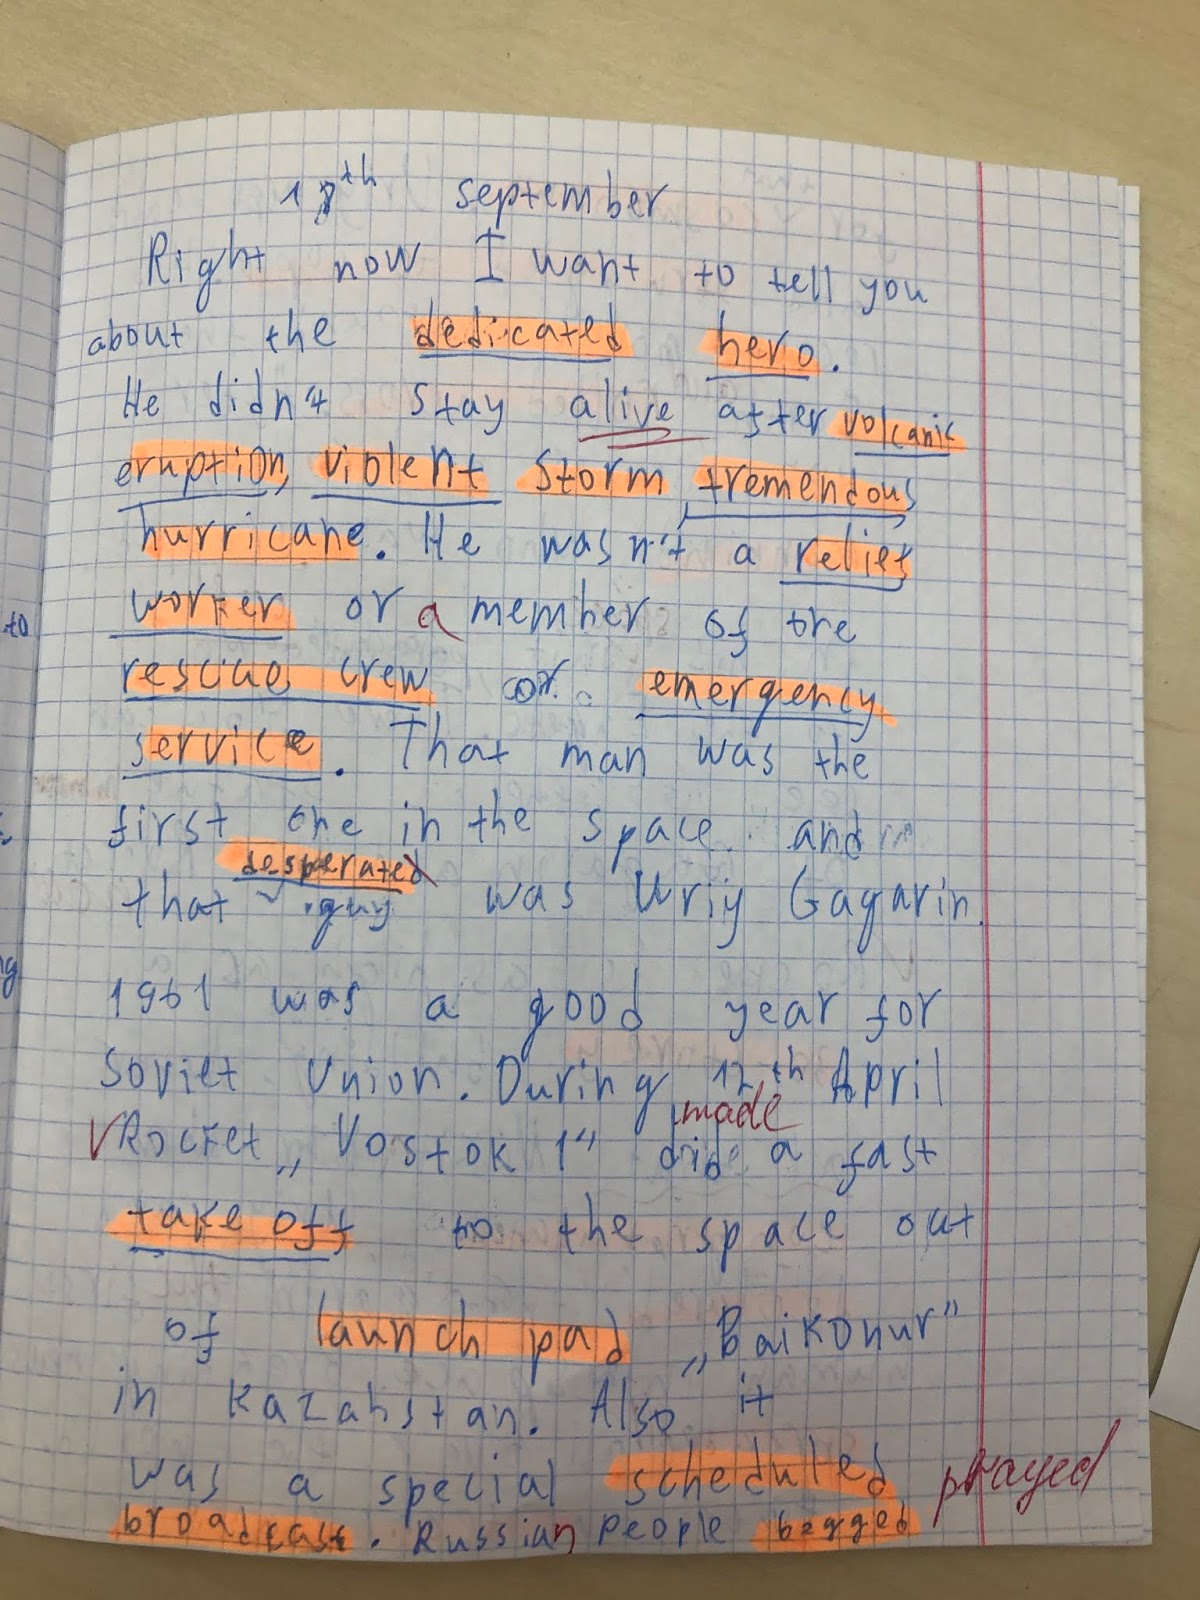 18th september
Right now I want to tell you
about the dedicated hero.
He didn't stay alive after volcanic
eruption, violent storm, tremendous
hurricane. He wasn't a relief
worker or a member of the
rescue crew or emergency
service. That man was the
first one in the space and
desperated
that guy was Uriy Gagarin.
1961 was a good year for
Soviet Union. During 12th April
made
Rocket „Vostok 1“ did a fast
take off to the space out
of launch pad „Baikonur”
in Kazahstan. Also it
was a special scheduled
prayed
broadcast. Russian people begged
to